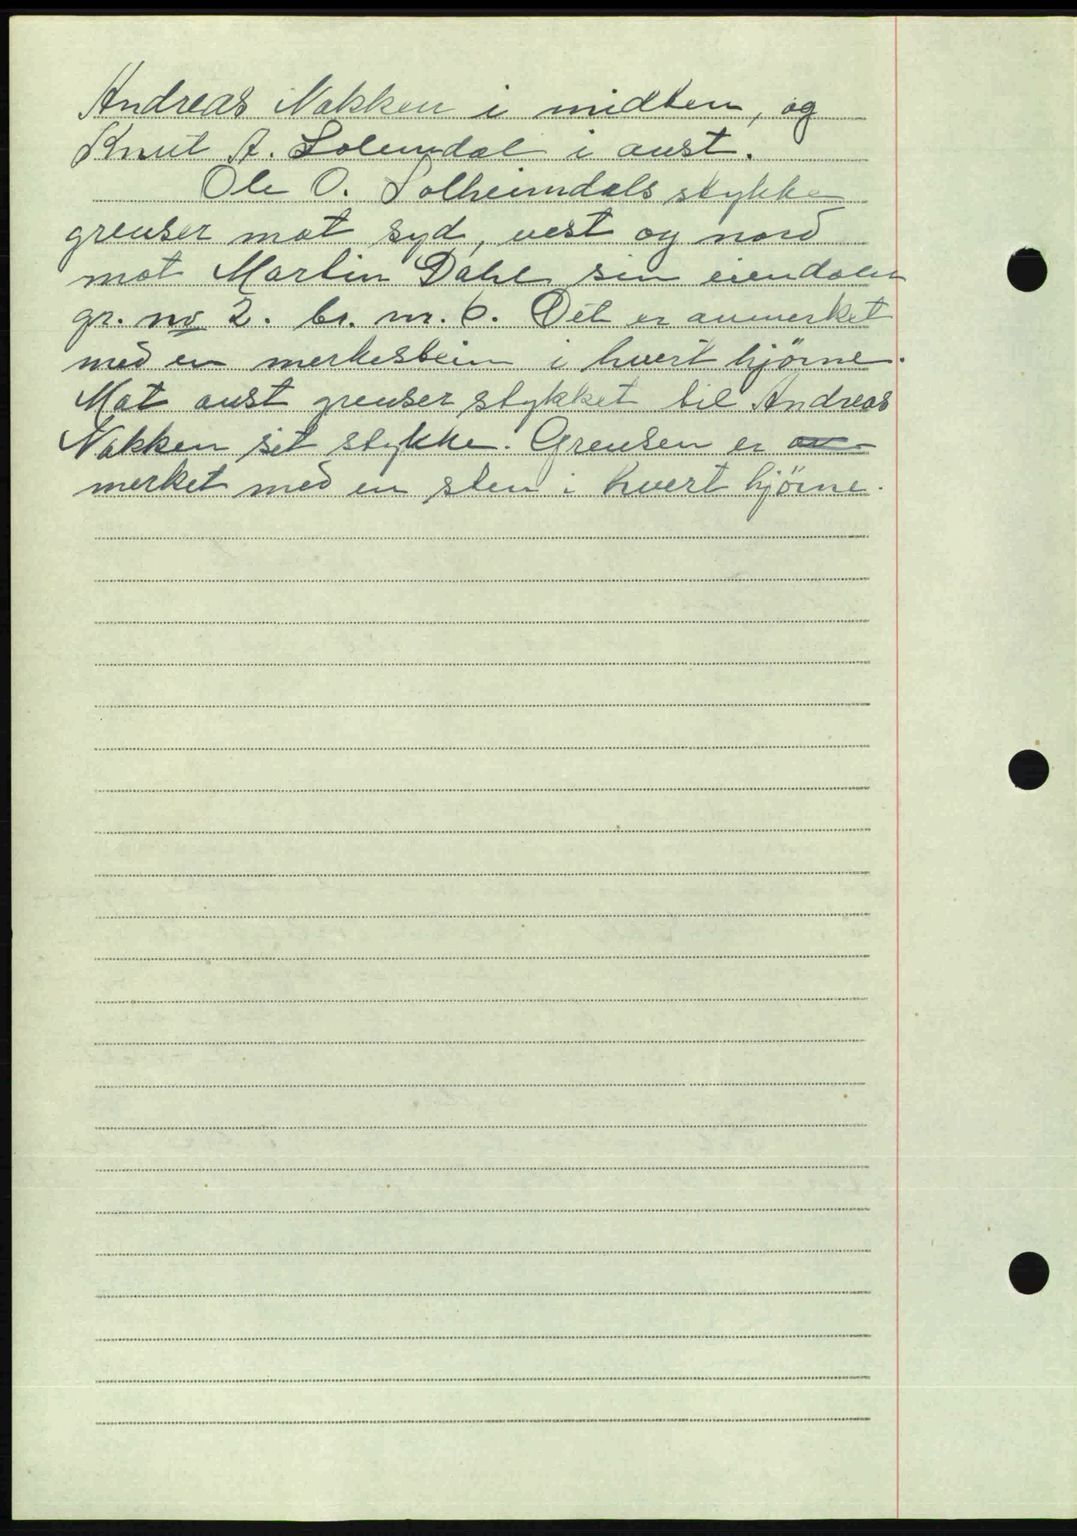 Andreas Nakken i midten, og
Knut A. Solemdal i aust.
Ole O. Solheimdals stykke
grenser mot syd, vest og nord
mot Martin Dahl sin eiendom
gr. no 2. br. nr. 6. Det er anmerket
med en merkestein i hvert hjørne.
Mot aust grenser stykket til Andreas
Nakken sit stykke. Grensen er
merket med en sten i hvert hjørne.